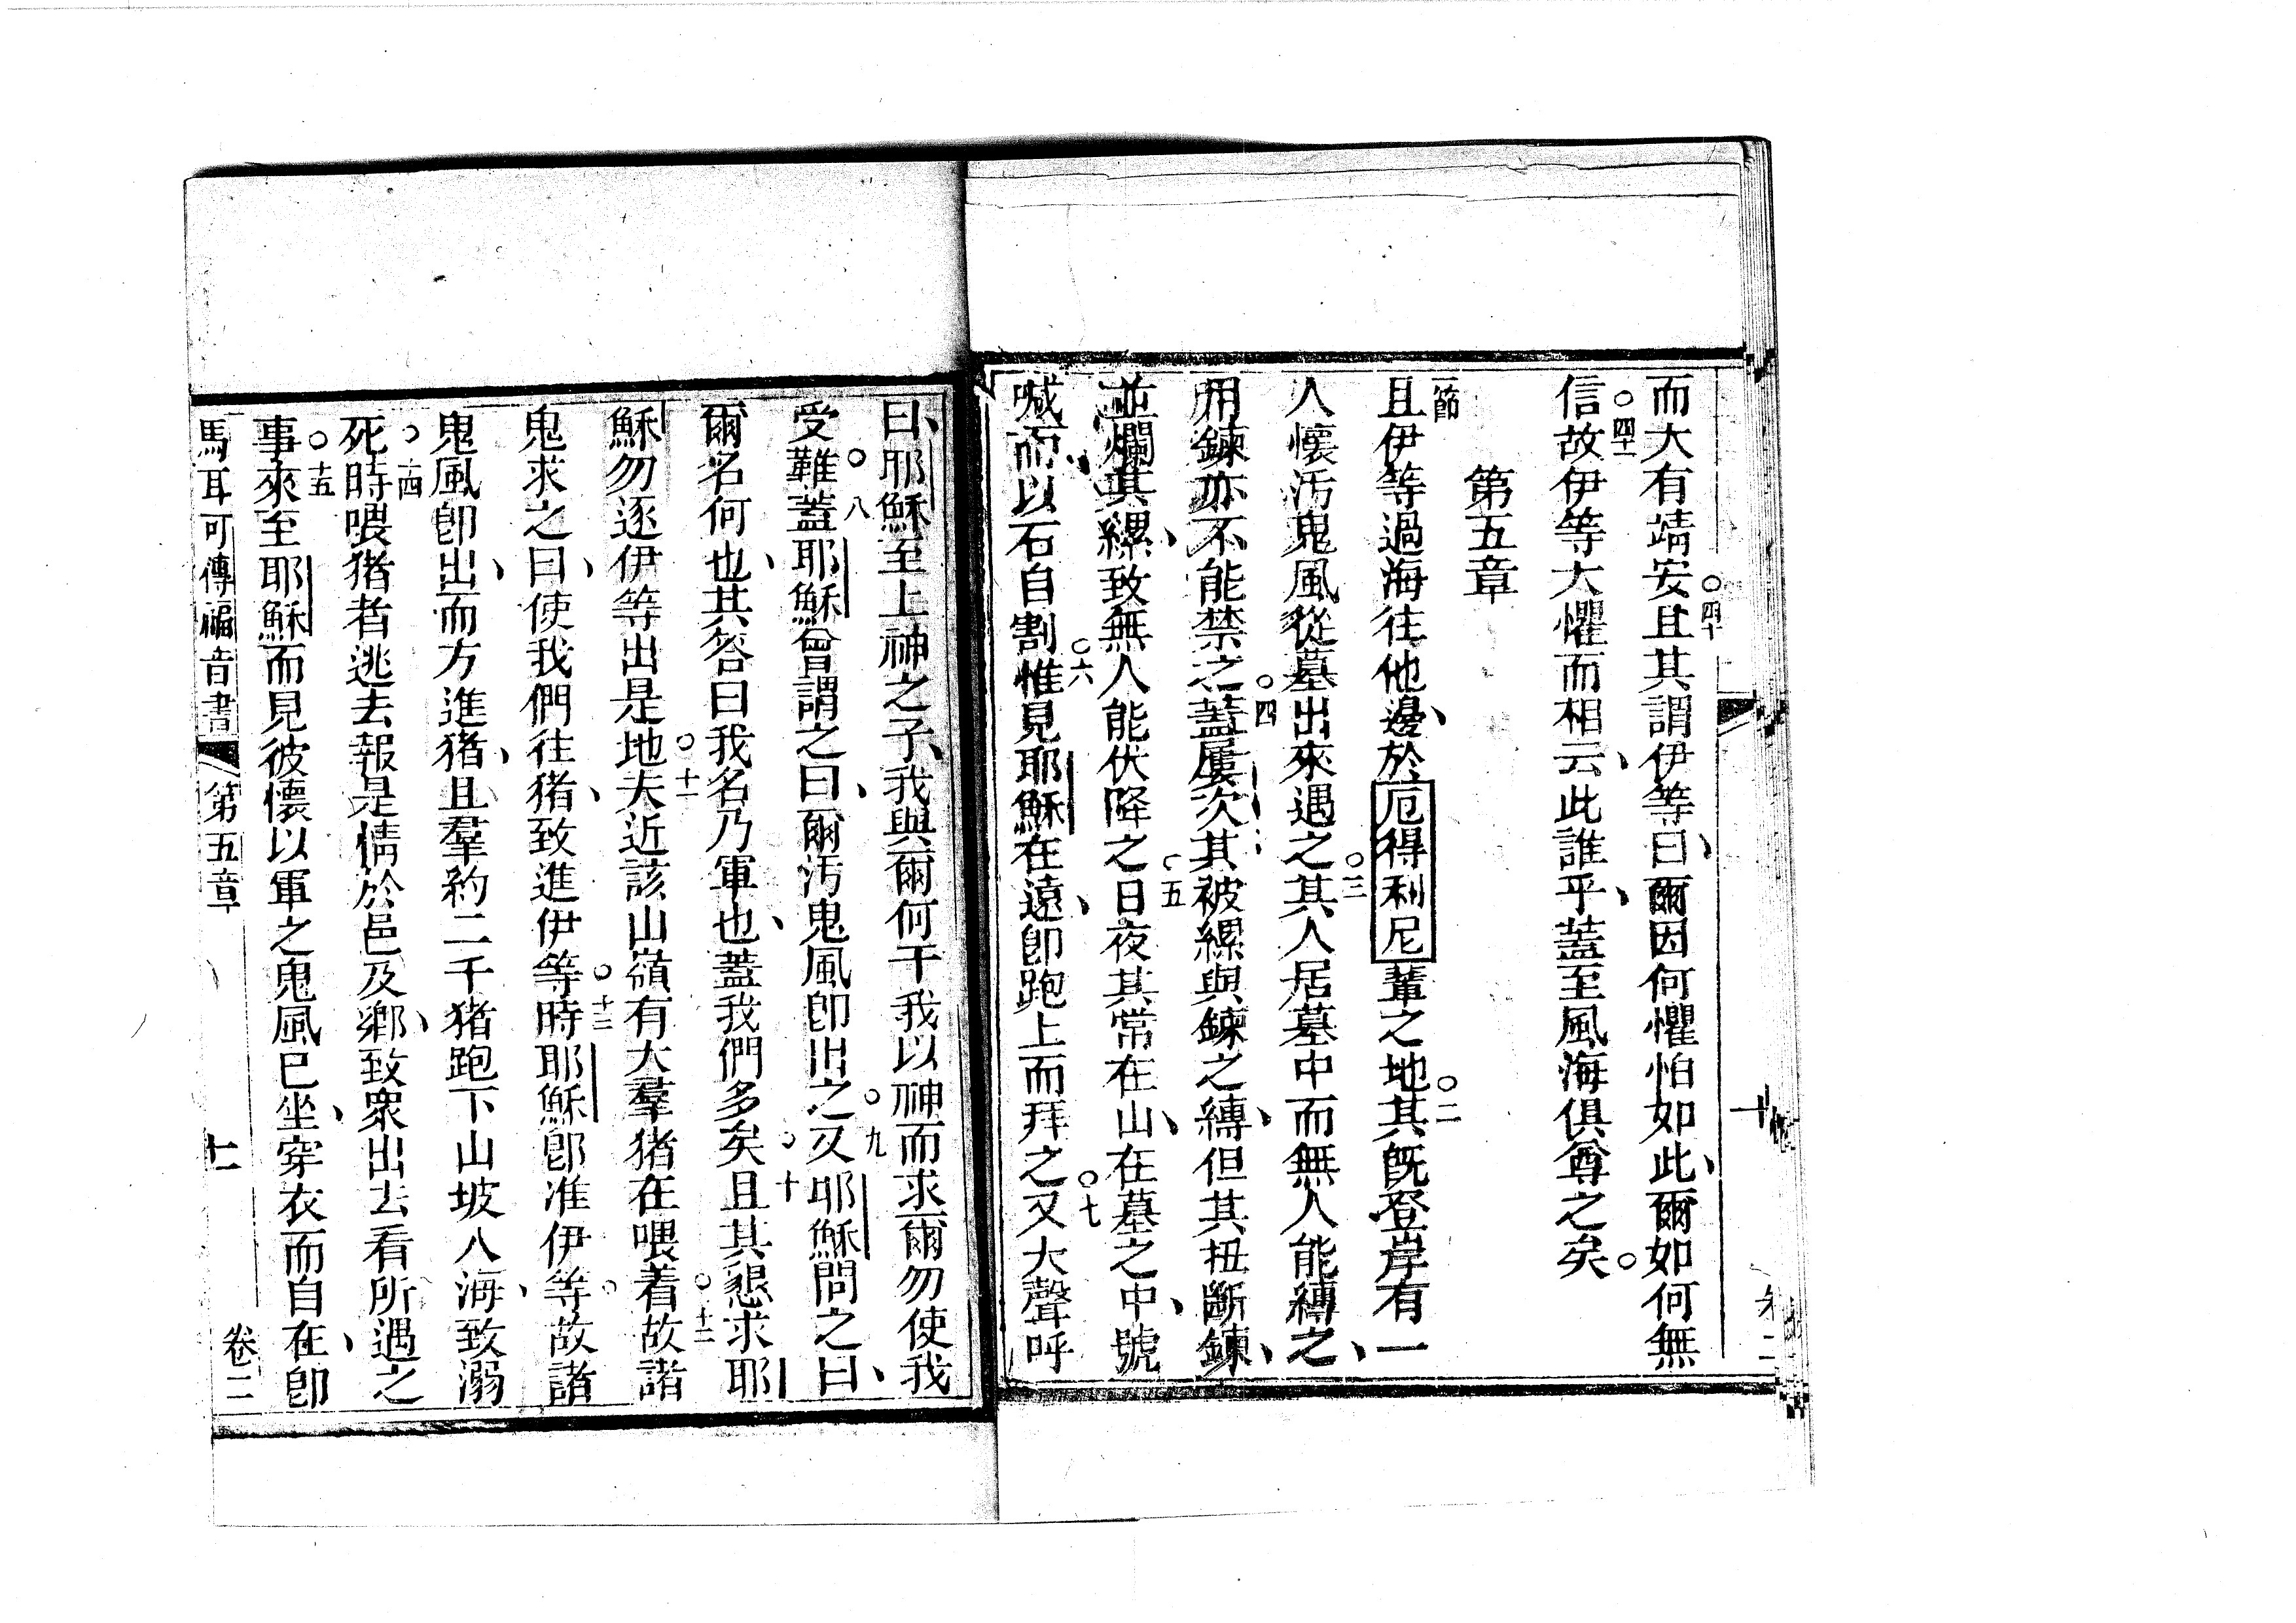 而大有靖安且其謂伊等曰、爾因何懼怕如此、爾如何無
信故伊等大懼而相云、此誰乎、蓋至風海俱遵之矣。
第五章
且伊等過海往他邊、於厄得利尼輩之地其旣登岸有一
人懷汚鬼風從墓出來遇之其人居墓中而無人能縛之、
用鍊亦不能禁之蓋屢次其被縲與鍊之縛、但其扭斷鍊、
並爛其縲、致無人能伏降之日夜其常在山、在墓之中、號
喊、而以石自割惟見耶穌在遠、卽跑上而拜之又大聲呼
曰、耶穌至上神之子、我與爾何干我以神而求爾勿使我
受難蓋耶穌曾謂之曰、爾汚鬼風卽出之又耶穌問之曰、
爾名何也、其答曰我名乃軍也、蓋我們多矣且其懇求耶
穌勿逐伊等出是地夫近該山嶺有大羣猪在喂着故諸
鬼求之曰、使我們往猪、致進伊等時耶穌卽准伊等故諸
鬼風卽出、而方進猪、且羣約二千猪跑下山坡入海、致溺
死時喂猪者逃去報是情於邑及鄉、致衆出去看所遇之
事來至耶穌而見彼懷以軍之鬼風已坐、穿衣而自在、卽
馬耳可傳福音書 第五章 十一 卷二